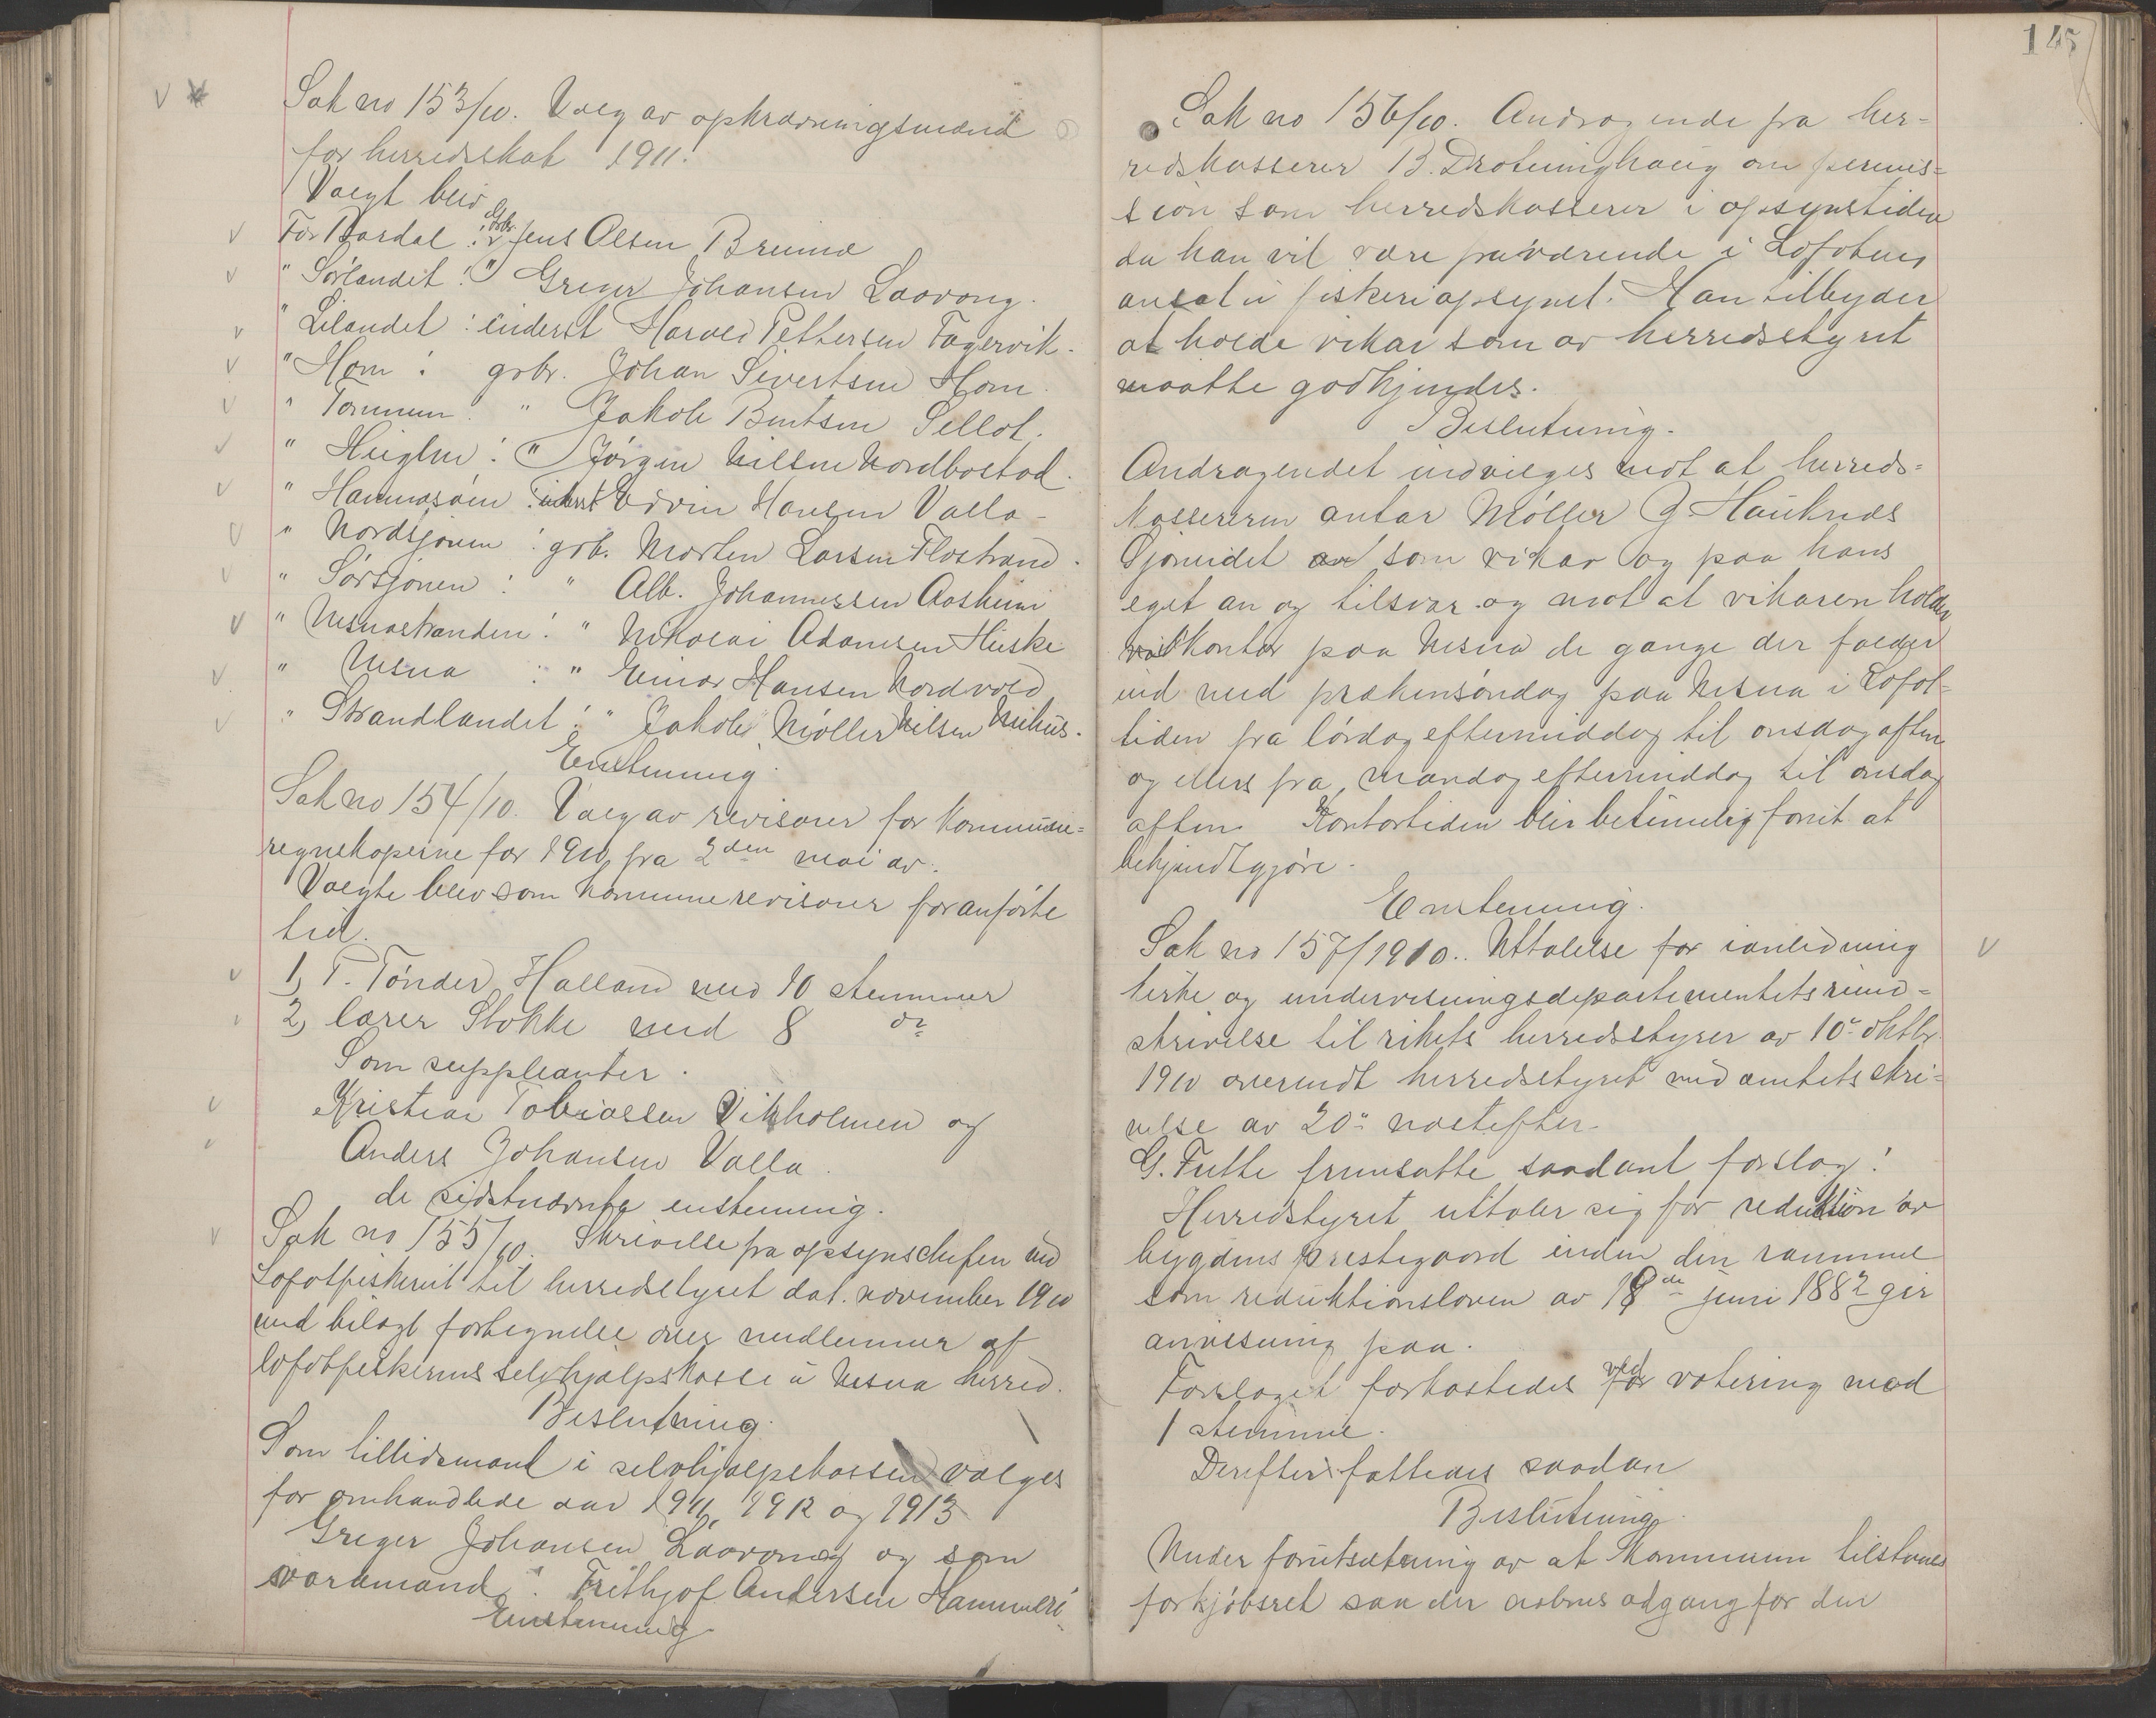 Sak no 153/10. Valg av opkrævningsmænd
for herredsskat 1911.
Valgt blev
For Bardal : Gbr. Jens Olsen Breimo
" Sørlandet : " Greger Johansen Laavong.
" Lilandet : inderst Harald Pettersen Fagervik.
" Hom : gbr. Johan Sivertsen Hom.
" Tommen : " Jakob Bentsen Sellot.
" Huglen : " Jørgen Nilsen Nordbostad.
" Hammarøen : inderst Edvin Hansen Valla
" Nordsjonen : grb. Morten Larsen Flostrand.
" Sørsjonen : " Alb. Johannessen Aasheim
" Nesnastranden : " Nikolai Adamsen Huske
" Nesna : " Einar Hansen Nordvold
" Strandlandet : " Jakob Møller Nilsen
Enstemmig.
Sak no 154/10. Valg av revisorer for kommune=
regnskaperne for 1910 fra 2den mai av.
Valgte blev som kommunerevisorer for anførte
tid.
1, T. Tønder Halland med 10 stemmer
2, lærer Stokke med 8 do
Som suppleanter.
Kristian Tobiassen Vikholmen og
Anders Johansen Valla.
de sidstnævnte enstemmig.
Sak no 155/10. Skrivelse fra opsynschefen ved
Lofotfiskeriet til herredstyret dat. november 1910
med bilagt fortegnelse over medlemmer af
lofotfiskernes selvhjælpskasse i Nesna herred.
Beslutning.
Som tillidsmand i selvhjælpskassen vælges
for omhandlede aar 1911, 1912 og 1913
Greger Johansen Laavong og som
varamand : Frithjof Andersen Hammerø.
Enstemmig.
145
Sak no 156/10. Andragende fra her-
redskasserer B. Drotninghaug om permis=
sion som herredskasserer i opsynstiden
da han vil være fraværende i Lofoten
ansat i fiskeriopsynet. Han tilbyder
at holde vikar som av herredsstyret
maatte godkjendes.
Beslutning.
Andragendet indvilges mot at herreds=
kassereren antar Møller G. Hauknes
Sjonidet som vikar og paa hans
eget an og tilsvar og mot at vikaren holder
kontor paa Nesna de gange der falder
ind med prækensøndag paa Nesna i Lofot=
tiden fra lørdag eftermiddag til onsdag aften
og ellers fra mandag eftermiddag til onsdag
aften. Kontortiden blir betimelig forut at
bekjendtgjøre.
Enstemmig.
Sak no 157/1910. Uttalelse for ianledning
kirke og undervisningsdepartementets rund=
skrivelse til rikets herredsstyrer av 10de oktbr.
1910 oversendt herredstyret med amtets skri=
velse av 20de næstefter.
G. Futte fremsatte saadant forslag:
Herredstyret uttaler sig for reduktion av
bygdens prestegaard inden den ramme
som reduktionsloven av 18de juni 1882 gir
anvisning paa.
Forslaget forkastedes ved votering mod
1 stemme.
Derefter fattedes saadan
Beslutning.
Under forutsætning av at kommunen tilstaaes
forkjøbsret saa der aabnes adgang for den